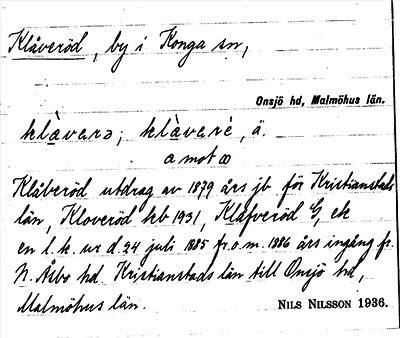 Klåveröd, by i Konga sn,
Onsjö hd, Malmöhus län.
klàverə; klàveré, ä.
a mot ω
Klåberöd utdrag av 1879 års jb för Kristianstads
län, Kloveröd kb 1931, Klåfveröd G, ek
en l. k. ur d 24 juli 1885 fr.o.m. 1886 års ingång fr.
N. Åsbo hd. Kristianstads län till Onsjö hd,
Malmöhus län.
NILS NILSSON 1936.